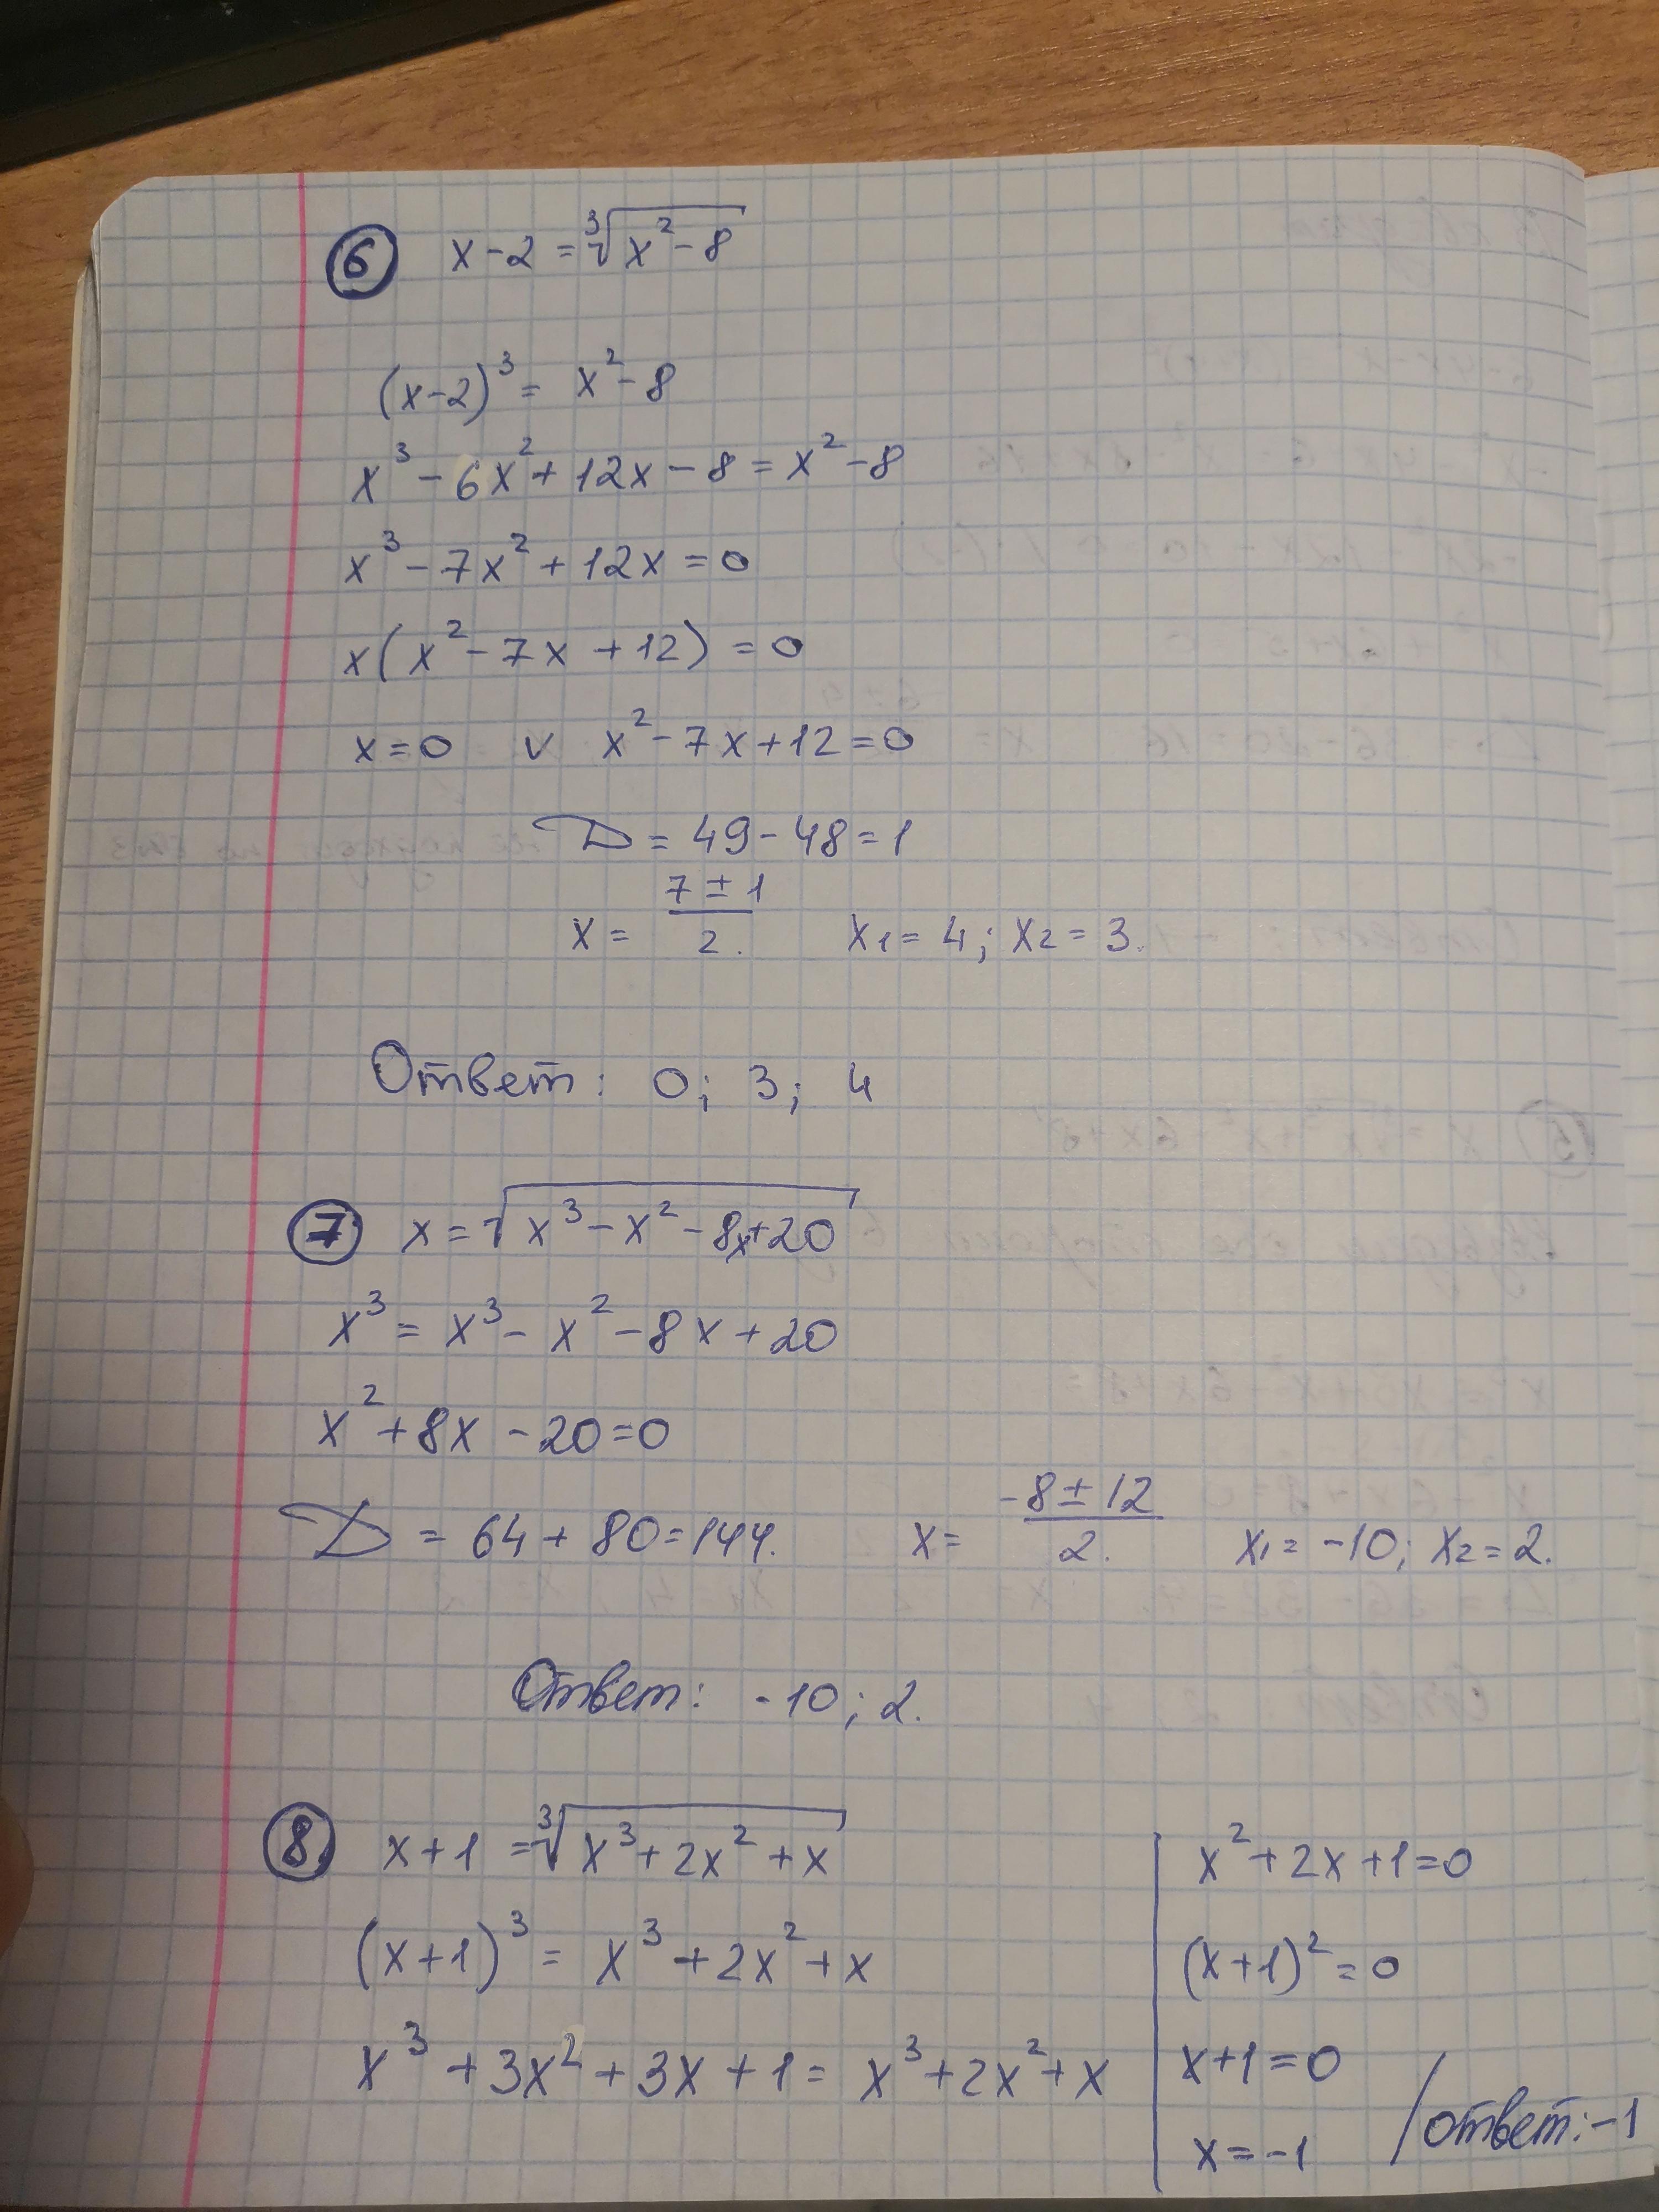 6 x-2 = ∛(x²-8)
(x-2)³ = x²-8
x³-6x²+12x-8 = x²-8
x³-7x²+12x=0
x(x²-7x+12)=0
x=0 ∨ x²-7x+12=0
D = 49-48=1
x = (7±1)/2. x₁=4; x₂=3.
Ответ: 0; 3; 4
7 x=√(x³-x²-8x+20)
x³ = x³-x²-8x+20
x²+8x-20=0
D = 64+80=144. x= (-8±12)/2. x₁=-10; x₂=2.
Ответ: -10; 2.
8 x+1 = ∛(x³+2x²+x)
(x+1)³ = x³+2x²+x
x³+3x²+3x+1= x³+2x²+x
x²+2x+1=0
(x+1)²=0
x+1=0
x=-1 / ответ: -1